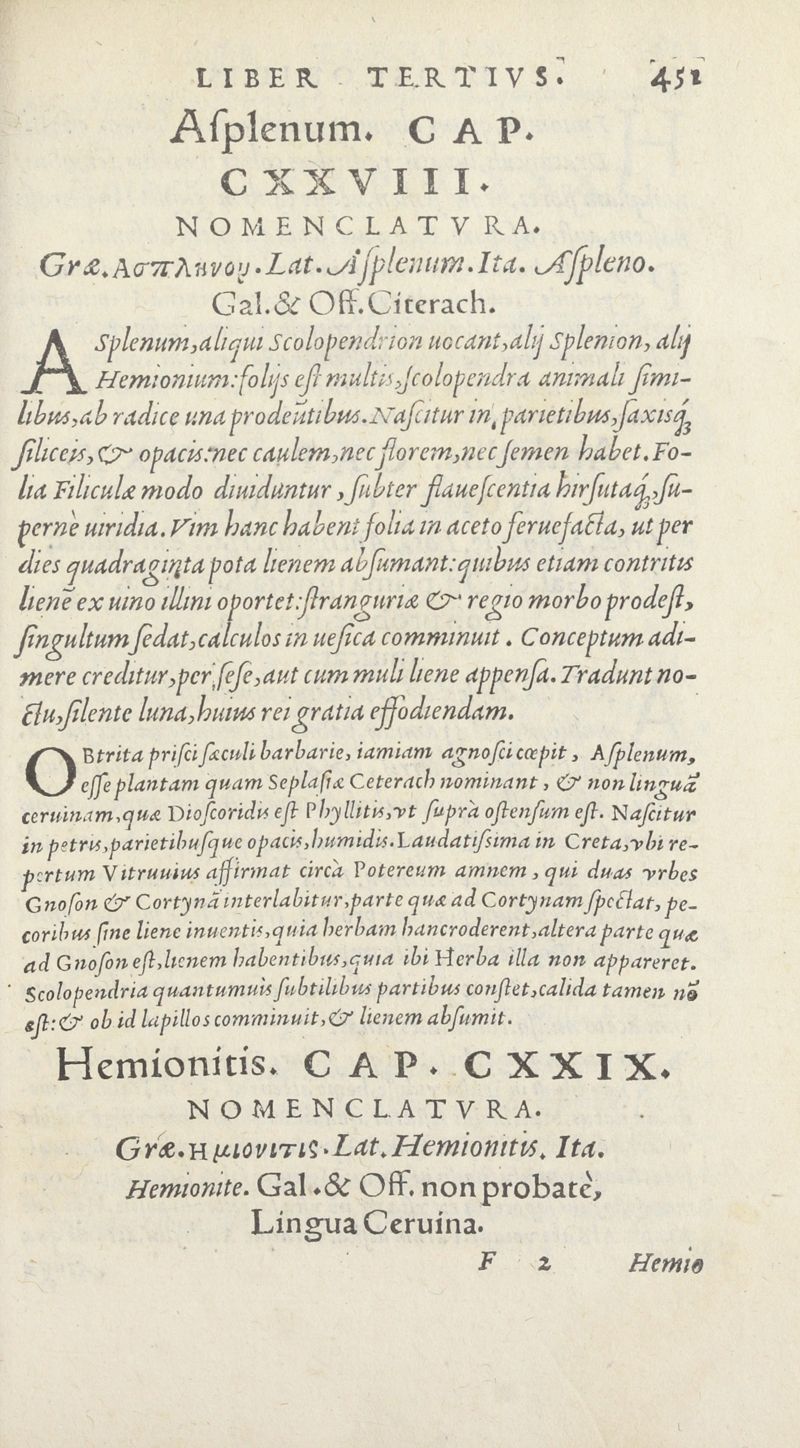 LIBER TERTIVS. 451
Aſplenum. CAP.
CXXVIII.
NOMENCLATVRA.
Græ. Ασπληνου. Lat. Aſplenum. Ita. Aſpleno.
Gal. & Off. Citerach.
ASplenum, aliqui Scolopendrion uocant, alij Splenion, alij
Hemionium: folijs eſt multis, ſcolopendra animali ſimi-
libus, ab radice una prodeūtibus. Naſcitur in parietibus, ſaxisq́;
ſiliceis, & opacis: nec caulem, nec florem, nec ſemen habet. Fo-
lia Filiculæ modo diuiduntur, ſubter flaueſcentia hirſutaq́;, ſu-
pernè uiridia. Vim hanc habent folia in aceto feruefacta, ut per
dies quadraginta pota lienem abſumant: quibus etiam contritis
lienē ex uino illini oportet: ſtranguriæ & regio morbo prodeſt,
ſingultum ſedat, calculos in ueſica comminuit. Conceptum adi-
mere creditur, per ſeſe, aut cum muli liene appenſa. Tradunt no-
ctu, ſilente luna, huius rei gratia effodiendam.
OBtrita priſci ſæculi barbarie, iamiam agnoſci cœpit, Aſplenum,
eſſe plantam quam Seplaſiæ Ceterach nominant, & non linguā
ceruinam, quæ Dioſcoridis eſt Phyllitis, vt ſuprà oſtenſum eſt. Naſcitur
in petris, parietibuſque opacis, humidis. Laudatiſsima in Creta, vbi re-
pertum Vitruuius affirmat circà Potereum amnem, qui duas vrbes
Gnoſon & Cortynā interlabitur, parte quæ ad Cortynam ſpectat, pe-
coribus ſine liene inuentis, quia herbam hanc roderent, altera parte quæ
ad Gnoſon eſt, lienem habentibus, quia ibi Herba illa non appareret.
Scolopendria quantumuis ſubtilibus partibus conſtet, calida tamen nō
eſt: & ob id lapillos comminuit, & lienem abſumit.
Hemionitis. CAP. CXXIX.
NOMENCLATVRA.
Græ. Ημιονιτις. Lat. Hemionitis. Ita.
Hemionite. Gal. & Off. non probatè,
Lingua Ceruina.
F 2 Hemio